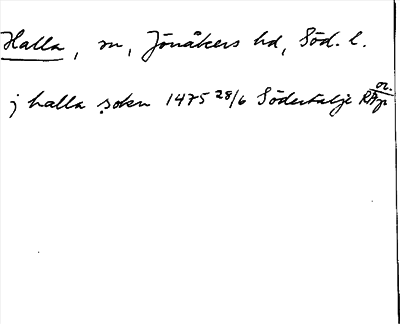 Halla, sn, Jönåkers hd, Söd. l.
j halla sokn 1475 28/6 Södertälje RAp or.